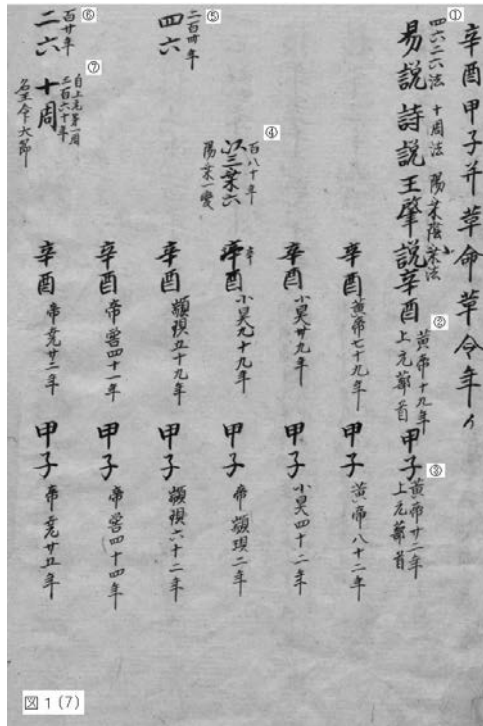 辛酉甲子并革命革令年
①
四六二六法 十周法 陽乗陰乗法
易説 詩説 王肇説 辛酉
②
黄帝十九年
上元蔀首
甲子
③
黄帝廿二年
上元蔀首
辛酉 黄帝七十九年 甲子 黄帝八十二年
辛酉 小昊卅九年 甲子 小昊四十二年
④
百八十年
以三乗六
陽乗一變
辛酉 小昊九十九年 甲子 帝顓頊二年
⑤
二百卌年
四六
辛酉 顓頊五十九年 甲子 顓頊六十二年
辛酉 帝嚳四十一年 甲子 帝嚳四十四年
⑥
百廿年
二六
⑦
自上元第一周
三百六十年
十周
辛酉 帝堯廿二年 甲子 帝堯廿五年
図1(7)